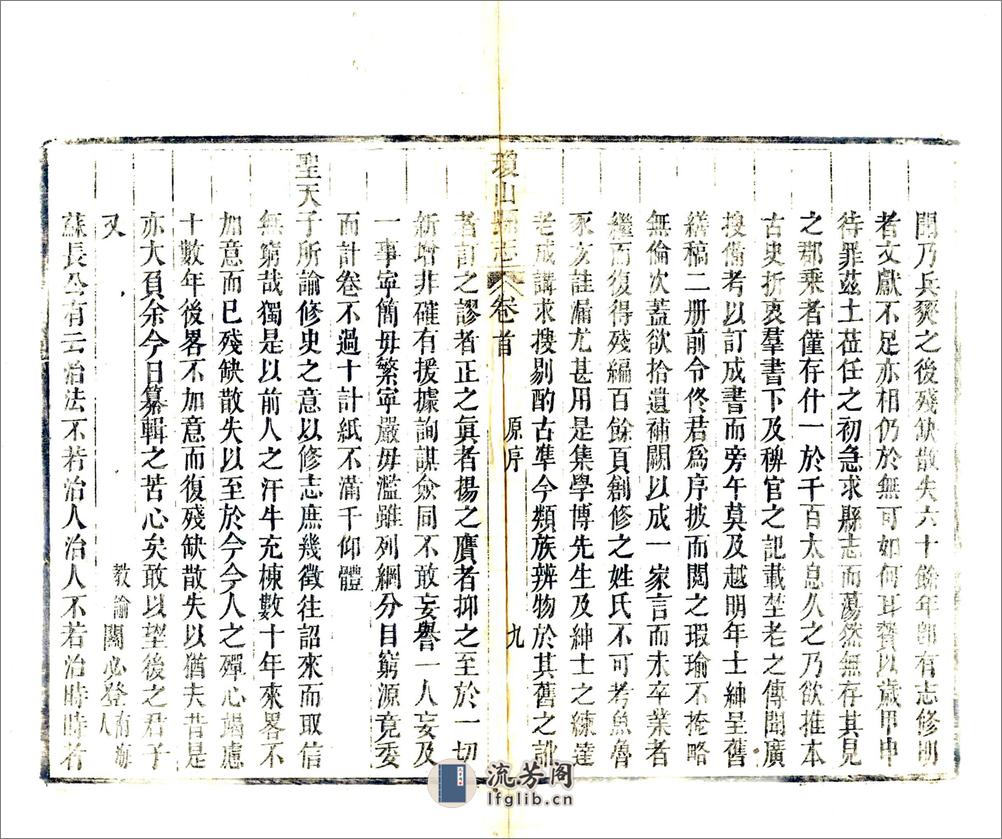 間乃兵燹之後殘缺散失六十餘年卽有志修明
者文獻不足亦相仍於無可如何耳贇以歲甲申
待罪茲土莅任之初急求縣志而蕩然無存其見
之郡乘者僅存什一於千百太息久之乃欲推本
古史折衷羣書下及稗官之記載埜老之傳聞廣
搜備考以訂成書而旁午莫及越明年士紳呈舊
繕稿二册前令佟君爲序披而閱之瑕瑜不掩略
無倫次蓋欲拾遺補闕以成一家言而未卒業者
繼而復得殘編百餘頁創修之姓氏不可考魚魯
豕亥訛漏尤甚用是集學博先生及紳士之練達
老成講求搜剔酌古準今類族辨物於其舊之訛
瓊山縣志 卷首 原序 九
者訂之謬者正之眞者揚之贋者抑之至於一切
新增非確有援據詢謀僉同不敢妄譽一人妄及
一事寧簡毋繁寧嚴毋濫雖列綱分目窮源竟委
而計卷不過十計紙不滿千仰體
聖天子所諭修史之意以修志庶幾徵往詔來而取信
無窮哉獨是以前人之汗牛充棟數十年來畧不
加意而已殘缺散失以至於今今人之殫心竭慮
十數年後畧不加意而復殘缺散失以猶夫昔是
亦大負余今日纂輯之苦心矣敢以望後之君子
又 教諭關必登南海人
蘇長公有云治法不若治人治人不若治時時者
流芳阁
lfglib.cn